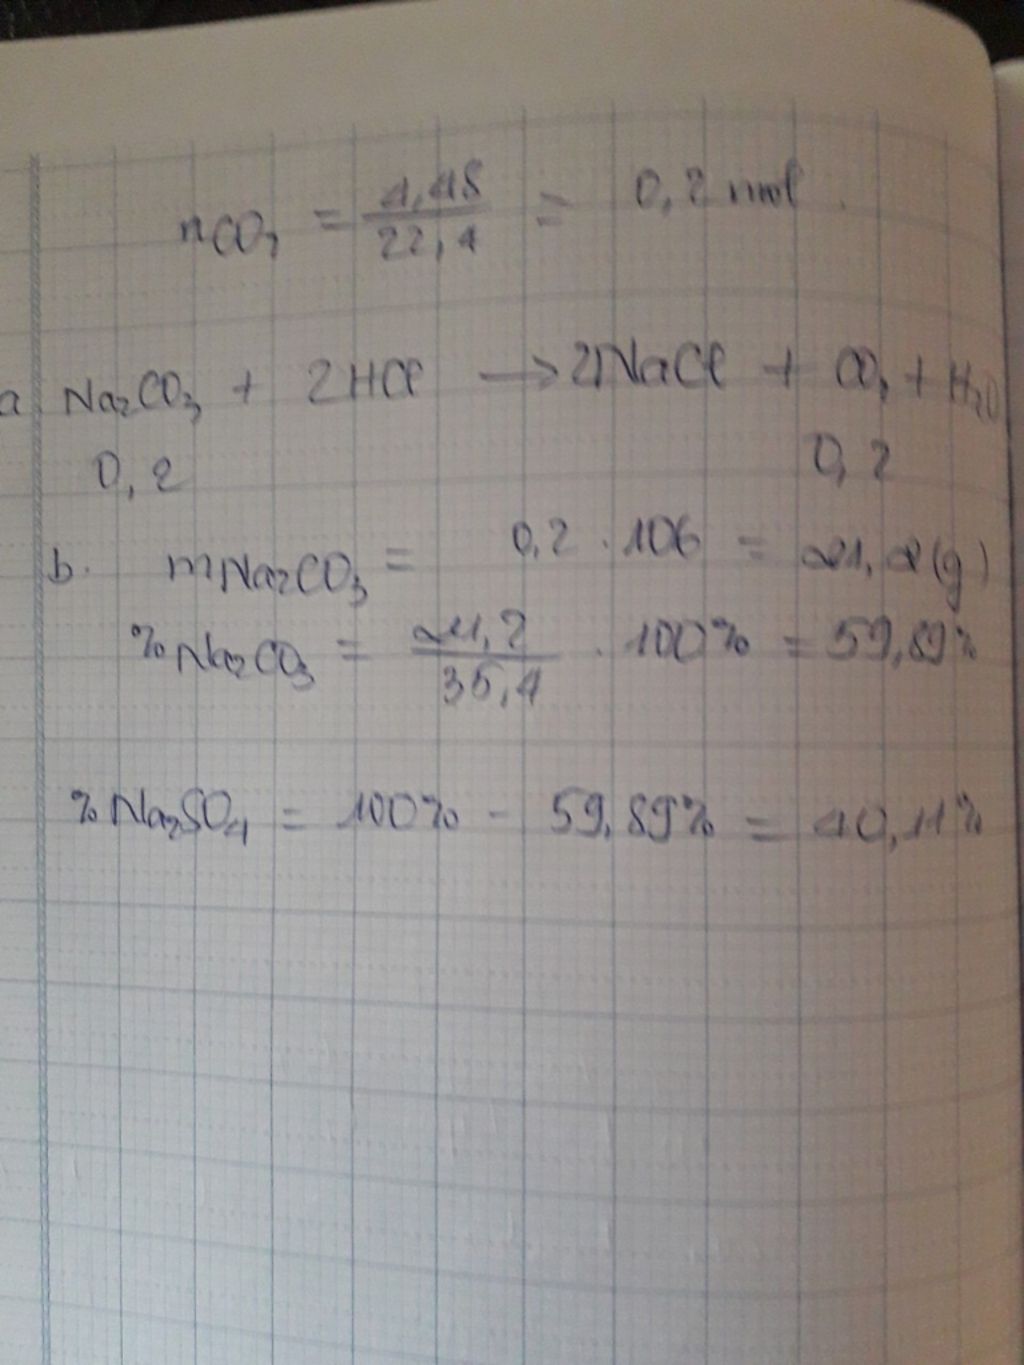 nCO₂ = 4,48/22,4 = 0,2 mol.
a Na₂CO₃ + 2HCl → 2NaCl + CO₂ + H₂O
0,2 0,2
b. mNa₂CO₃ = 0,2 . 106 = 21,2 (g)
%Na₂CO₃ = 21,2/35,4 . 100% = 59,89%
%Na₂SO₄ = 100% - 59,89% = 40,11%